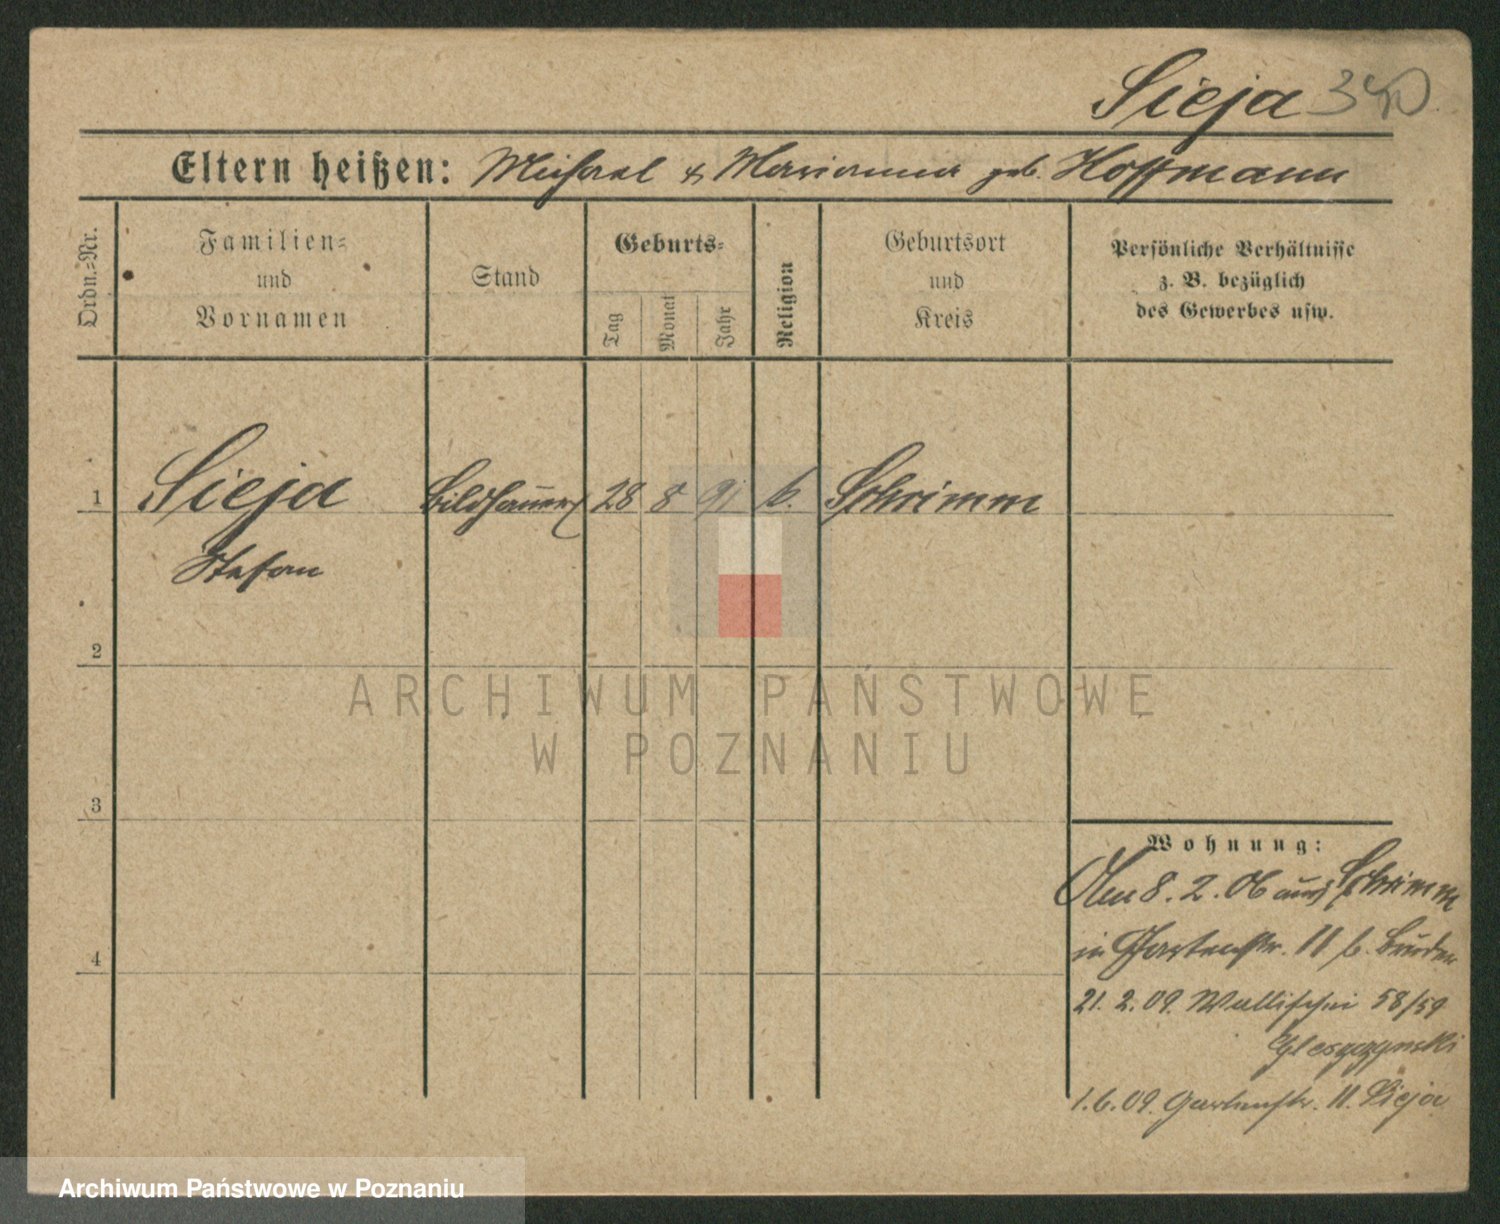 Sieja
Eltern heißen: Michael & Marianna geb. Hoffmann
Ordn.-Nr.
Familien-
und
Vornamen
Stand
Geburts-
Tag
Monat
Jahr
Religion
Geburtsort
und
Kreis
Persönliche Verhältnisse
z. B. bezüglich
des Gewerbes usw.
1 Sieja Bildhauer 28 8 91 k. Schrimm
Stefan
2
3
4
ARCHIWUM PAŃSTWOWE
W POZNANIU
Wohnung:
8. 2. 06 aus Schrimm
in Gartenstr. 11 b. Bruder
21. 2. 09. Wallischei 58/59
1.6.09. Gartenstr. 11. Sieja
Archiwum Państwowe w Poznaniu